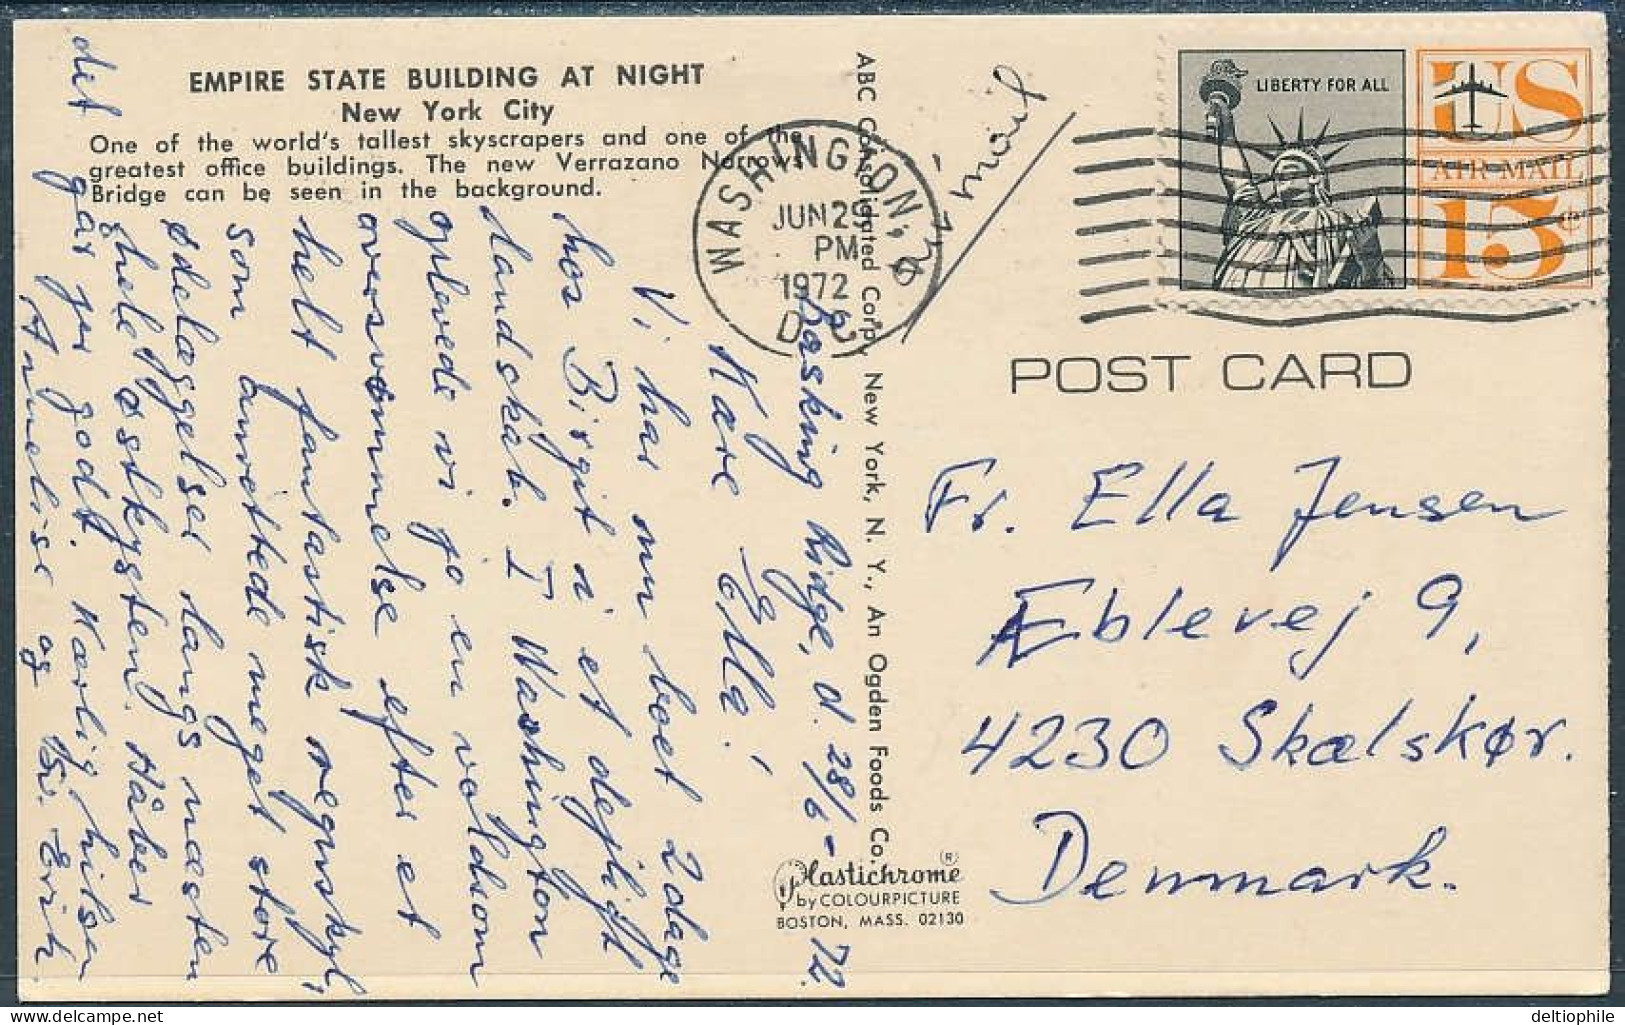 EMPIRE STATE BUILDING AT NIGHT
New York City
One of the world's tallest skyscrapers and one of the
greatest office buildings. The new Verrazano Narrows
Bridge can be seen in the background.
Basking Ridge, d. 28/6-72.
Kære Ella!
Vi har nu boet 2 dage
hos Birgit i et dejligt
landskab. I Washington
oplevede vi jo en voldsom
oversvømmelse efter et
helt fantastisk regnskyl,
som anrettede meget store
ødelæggelser langs næsten
hele østkysten. Håber
det går jer godt. Kærlig hilsen
Annelise og Sv. Erik.
ABC Consolidated Corp., New York, N. Y., An Ogden Foods Co.
WASHINGTON,
JUN 29
PM
1972
D.C.
LIBERTY FOR ALL
US
AIR MAIL
15¢
POST CARD
Fr. Ella Jensen
Æblevej 9,
4230 Skælskør.
Denmark.
Plastichrome ®
by COLOURPICTURE
BOSTON, MASS. 02130
deltiophile